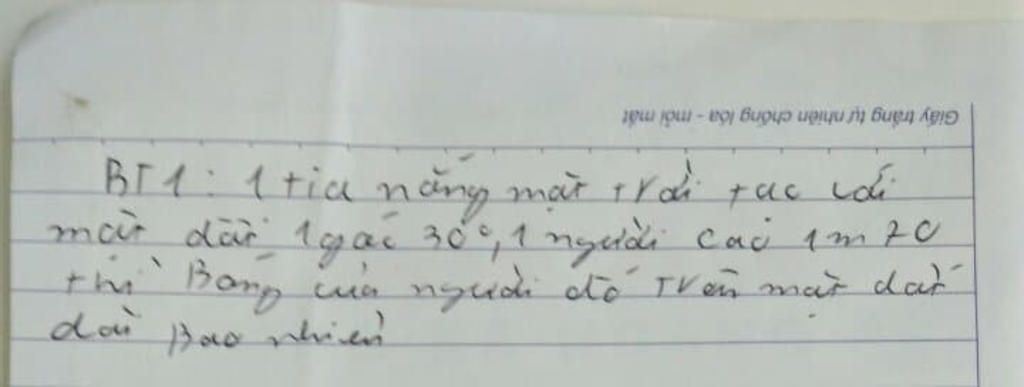 Giấy trắng tự nhiên chống lóa - mỏi mắt
BT1: 1 tia nắng mặt trời tạc với
mặt đất 1 góc 30°, 1 người cao 1m70
thì Bóng của người đó Trên mặt đất
dài Bao nhiêu